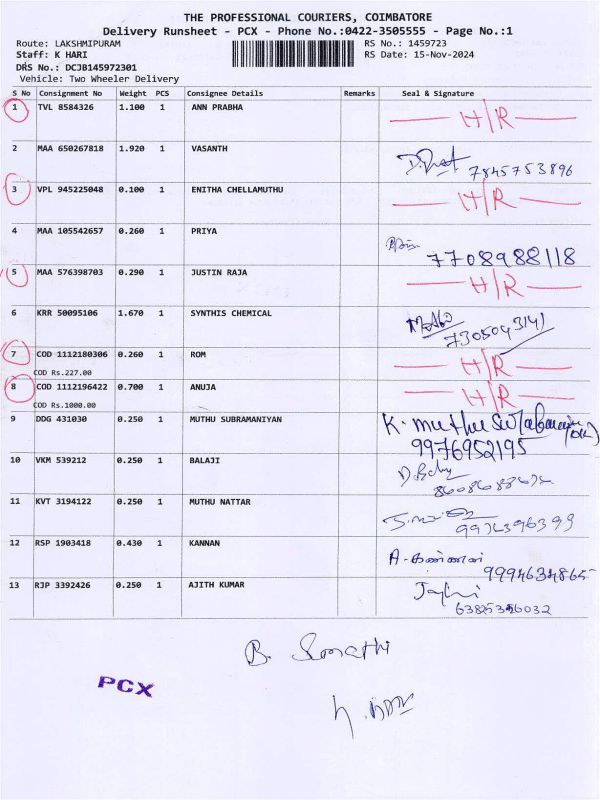 THE PROFESSIONAL COURIERS, COIMBATORE
Delivery Runsheet - PCX - Phone No.:0422-3505555 - Page No.:1
Route: LAKSHMIPURAM RS No.: 1459723
Staff: K HARI RS Date: 15-Nov-2024
DRS No.: DCJB145972301
Vehicle: Two Wheeler Delivery
S No Consignment No Weight PCS Consignee Details Remarks Seal & Signature
1 TVL 8584326 1.100 1 ANN PRABHA H/R
2 MAA 650267818 1.920 1 VASANTH
7845753896
3 VPL 945225048 0.100 1 ENITHA CHELLAMUTHU H/R
4 MAA 105542657 0.260 1 PRIYA
7708988118
5 MAA 576398703 0.290 1 JUSTIN RAJA H/R
6 KRR 50095106 1.670 1 SYNTHIS CHEMICAL
7305043141
7 COD 1112180306 0.260 1 ROM H/R
COD Rs.227.00
8 COD 1112196422 0.700 1 ANUJA H/R
COD Rs.1000.00
9 DDG 431030 0.250 1 MUTHU SUBRAMANIYAN K. Muthu
9976952195
10 VKM 539212 0.250 1 BALAJI
11 KVT 3194122 0.250 1 MUTHU NATTAR
9976396399
12 RSP 1903418 0.430 1 KANNAN A. கண்ணன்
9994634865
13 RJP 3392426 0.250 1 AJITH KUMAR
B.
PCX